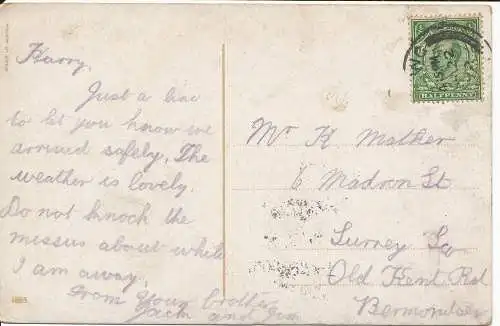 Harry.
Just a line
to let you know we
arrived safely. The
weather is lovely.
Do not knoch the
missus about while
I am away.
From your brother
Jack and
Mr H Mather
6 Madron St
Surrey Sq
Old Kent Rd
Bermondsey
HALFPENNY